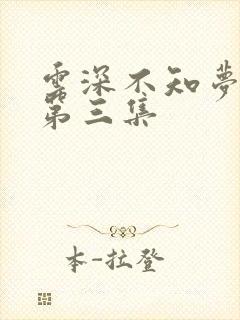 云深不知夢
第三集
本-拉登